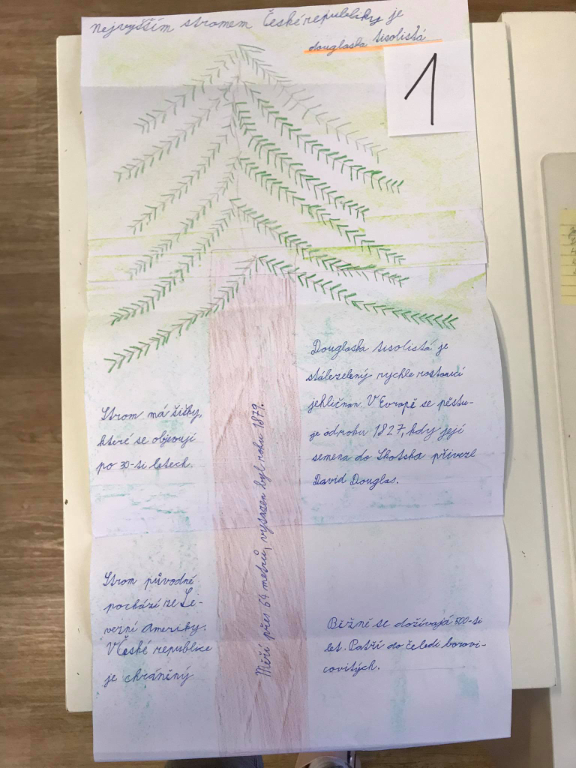 Nejvyšším stromem České republiky je
douglaska tisolistá
1
Douglaska tisolistá je
stálezelený rychle rostoucí
jehličnan. V Evropě se pěstu-
je od roku 1827, kdy její
semena do Skotska přivezl
David Douglas.
Strom má šišky,
které se objevují
po 30-ti letech.
Měří přes 64 metrů, vysazen byl roku 1879.
Strom původně
pochází ze Se-
verní Ameriky.
V České republice
je chráněný
Běžně se dožívají 500-ti
let. Patří do čeledi borovi-
covitých.